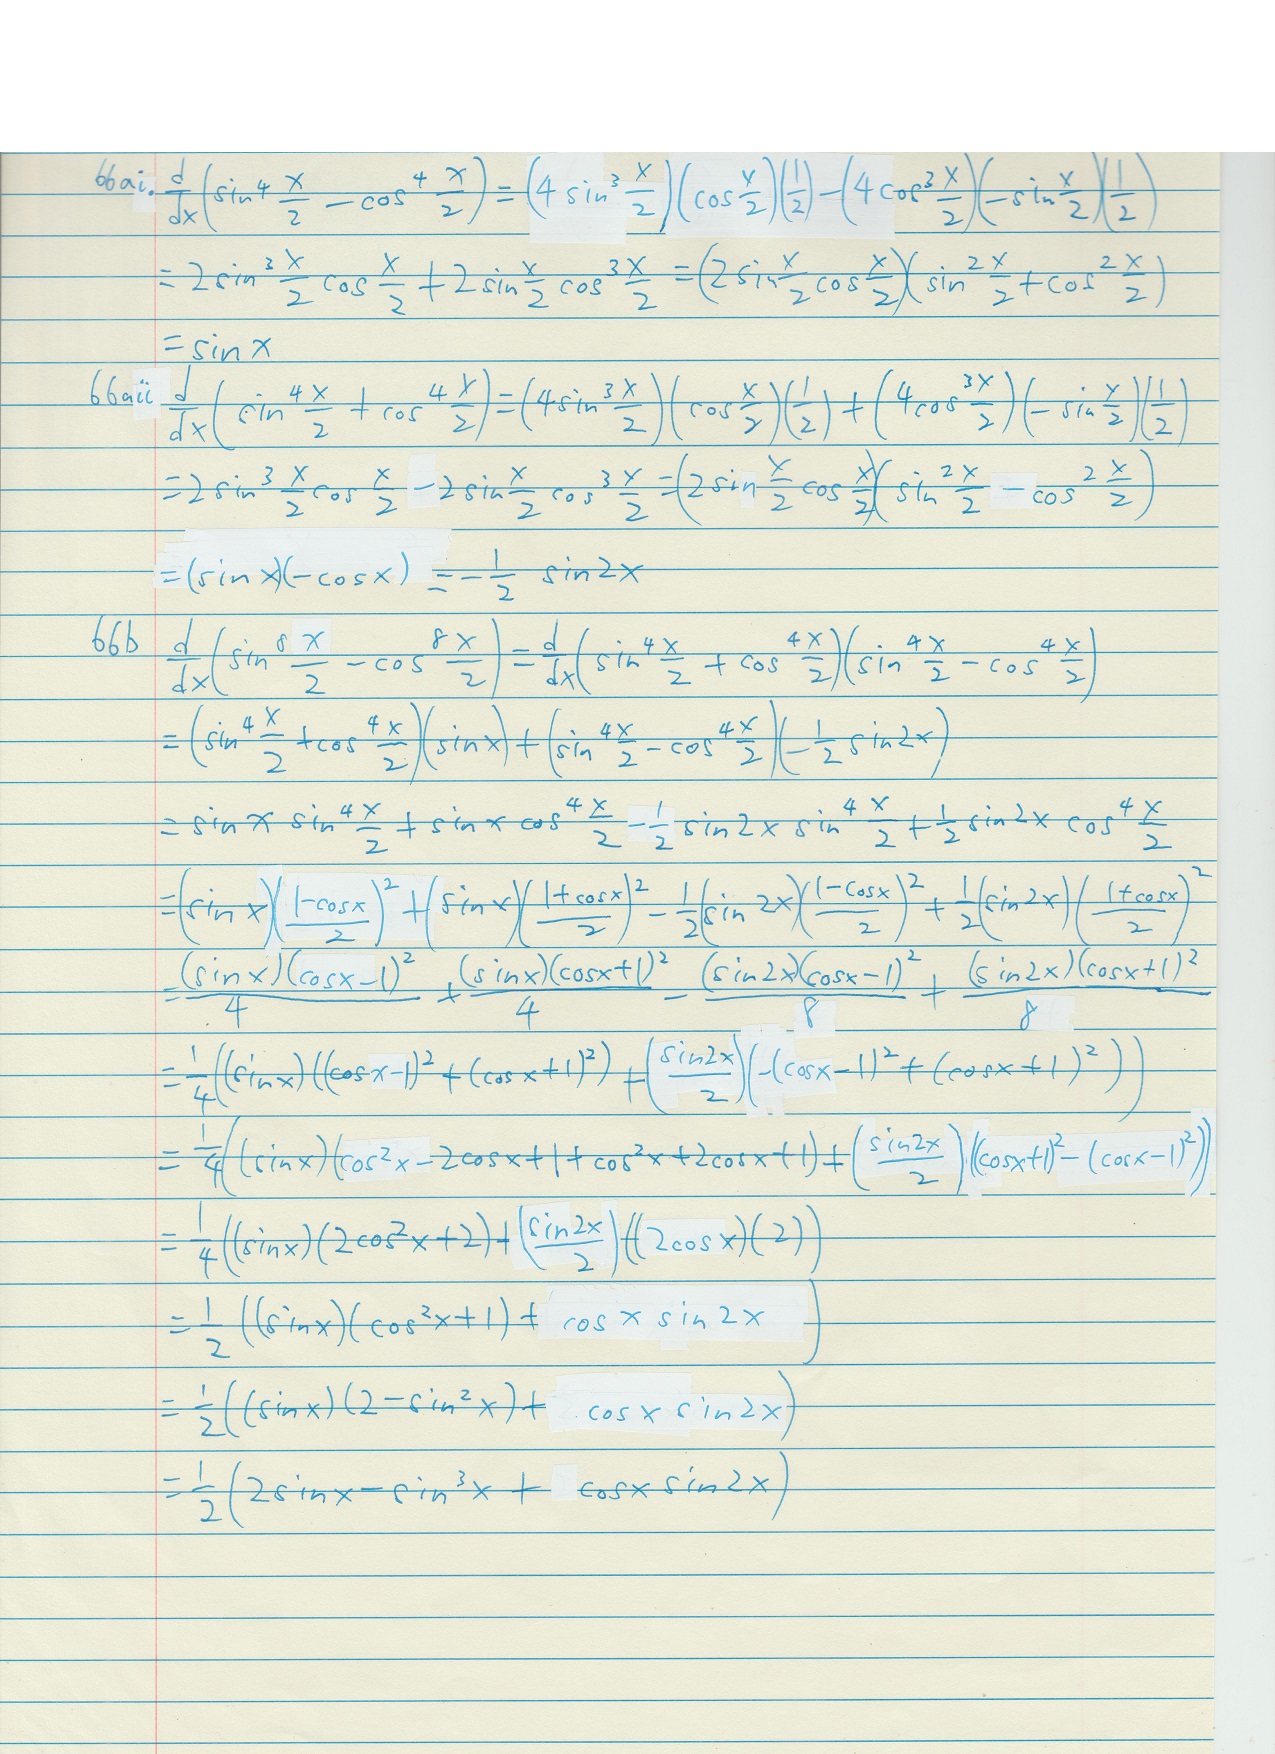 66ai. d/dx (sin⁴ x/2 − cos⁴ x/2) = (4 sin³ x/2)(cos x/2)(1/2) − (4 cos³ x/2)(−sin x/2)(1/2)
= 2 sin³ x/2 cos x/2 + 2 sin x/2 cos³ x/2 = (2 sin x/2 cos x/2)(sin² x/2 + cos² x/2)
= sin x
66aii d/dx (sin⁴ x/2 + cos⁴ x/2) = (4 sin³ x/2)(cos x/2)(1/2) + (4 cos³ x/2)(− sin x/2)(1/2)
= 2 sin³ x/2 cos x/2 − 2 sin x/2 cos³ x/2 = (2 sin x/2 cos x/2)(sin² x/2 − cos² x/2)
= (sin x)(−cos x) = −1/2 sin 2x
66b d/dx (sin⁸ x/2 − cos⁸ x/2) = d/dx (sin⁴ x/2 + cos⁴ x/2)(sin⁴ x/2 − cos⁴ x/2)
= (sin⁴ x/2 + cos⁴ x/2)(sin x) + (sin⁴ x/2 − cos⁴ x/2)(−1/2 sin 2x)
= sin x sin⁴ x/2 + sin x cos⁴ x/2 − 1/2 sin 2x sin⁴ x/2 + 1/2 sin 2x cos⁴ x/2
= (sin x)((1−cos x)/2)² + (sin x)((1+cos x)/2)² − 1/2 (sin 2x)((1−cos x)/2)² + 1/2 (sin 2x)((1+cos x)/2)²
= (sin x)(cos x−1)²/4 + (sin x)(cos x+1)²/4 − (sin 2x)(cos x−1)²/8 + (sin 2x)(cos x+1)²/8
= 1/4 ((sin x)((cos x−1)² + (cos x+1)²) + (sin 2x/2)(−(cos x−1)² + (cos x+1)²))
= 1/4 ((sin x)(cos² x − 2cos x + 1 + cos² x + 2cos x + 1) + (sin 2x/2)((cos x+1)² − (cos x−1)²))
= 1/4 ((sin x)(2cos² x + 2) + (sin 2x/2)((2cos x)(2))
= 1/2 ((sin x)(cos² x + 1) + cos x sin 2x)
= 1/2 ((sin x)(2 − sin² x) + cos x sin 2x)
= 1/2 (2 sin x − sin³ x + cos x sin 2x)